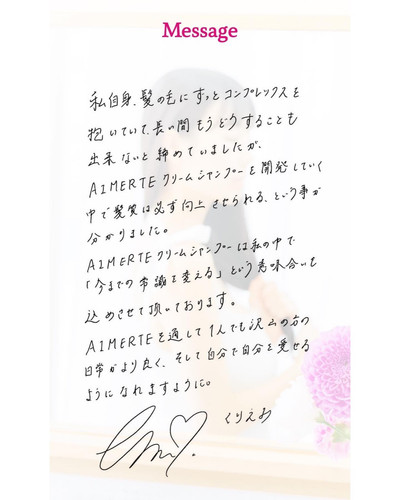 Message
私自身、髪の毛にずっとコンプレックスを
抱いていて、長い間もうどうすることも
出来ないと諦めていましたが、
AIMERTEクリームシャンプーを開発していく
中で髪質は必ず向上させられる、という事が
分かりました。
AIMERTEクリームシャンプーは私の中で
「今までの常識を変える」という意味合いも
込めさせて頂いております。
AIMERTEを通して1人でも沢山の方の
日常がより良く、そして自分で自分を愛せる
ようになれますように。
くりえみ